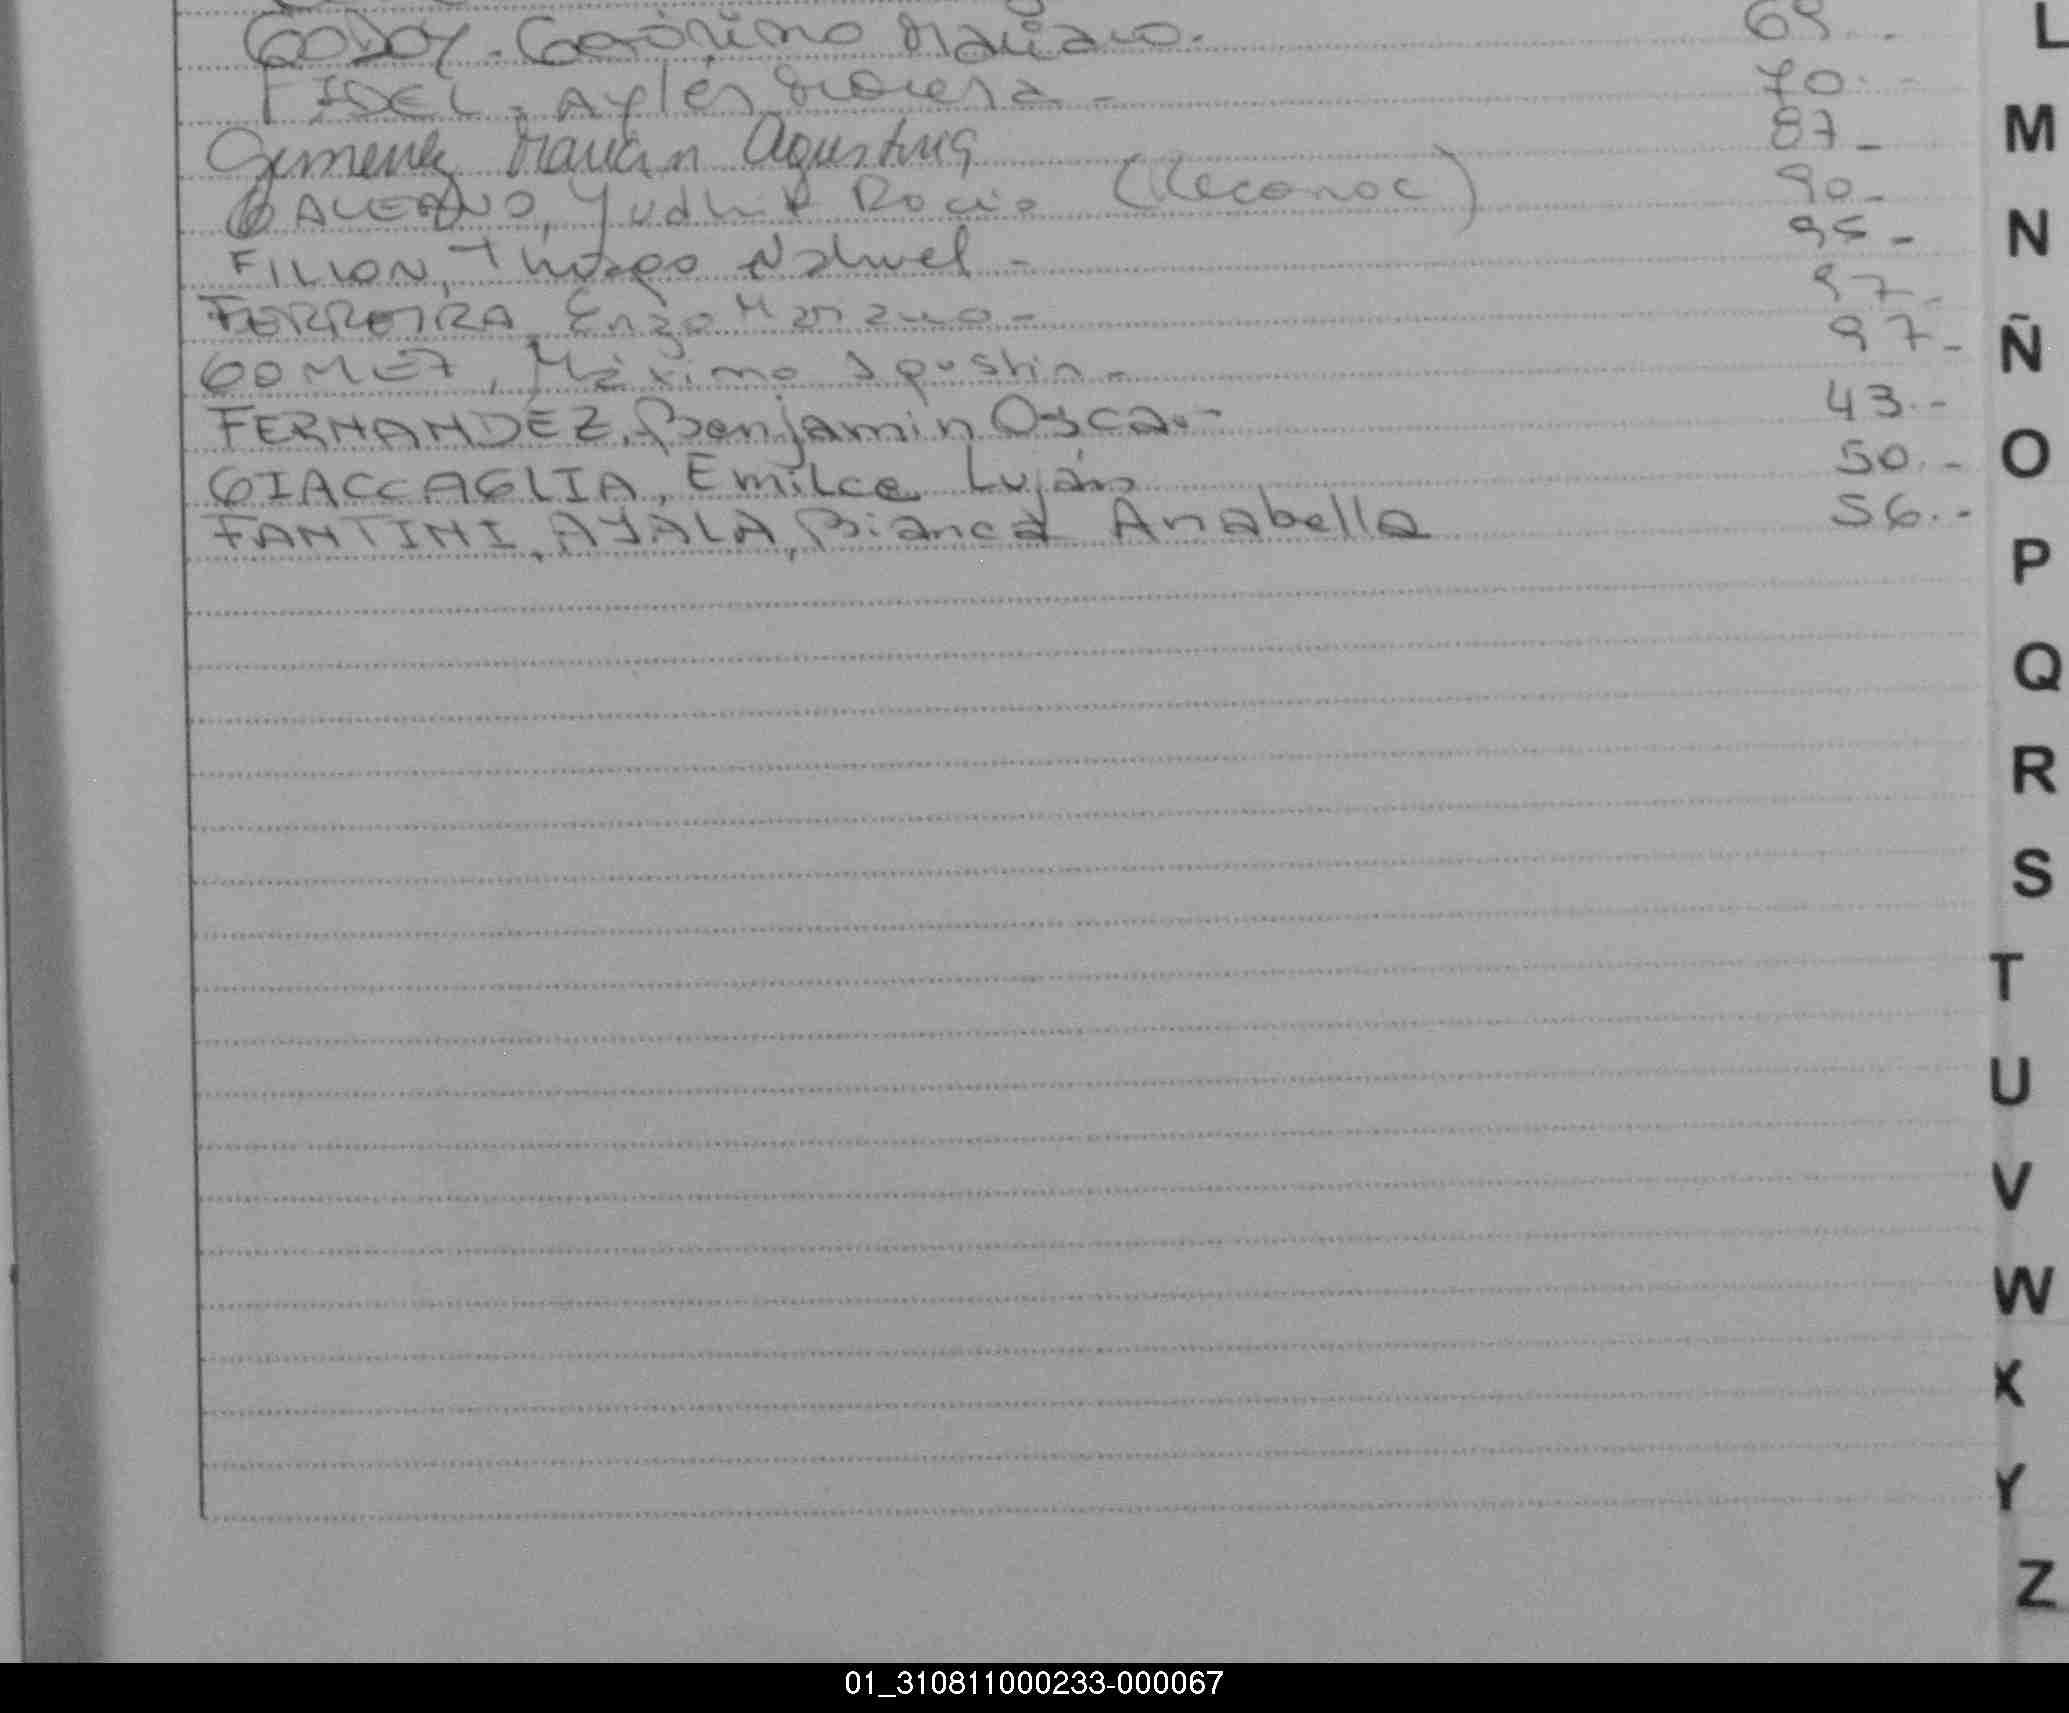 GODOY - Gerónimo Mariano. 69.-
FIDEL - Aylén Morena - 70.-
Gimenez Martin Agustina 87 -
GALEANO, Yudhit Rocio (Reconoc) 90 -
FILLON, Thiago Nahuel - 95 -
FERREIRA, Enzo Mariano - 97 -
GOMEZ, Máximo Agustin - 97 -
FERNANDEZ, Benjamin Oscar - 43.-
GIACCAGLIA, Emilce Luján 50.-
FANTINI, AYALA, Bianca Anabella 56.-
L
M
N
Ñ
O
P
Q
R
S
T
U
V
W
X
Y
Z
01_310811000233-000067